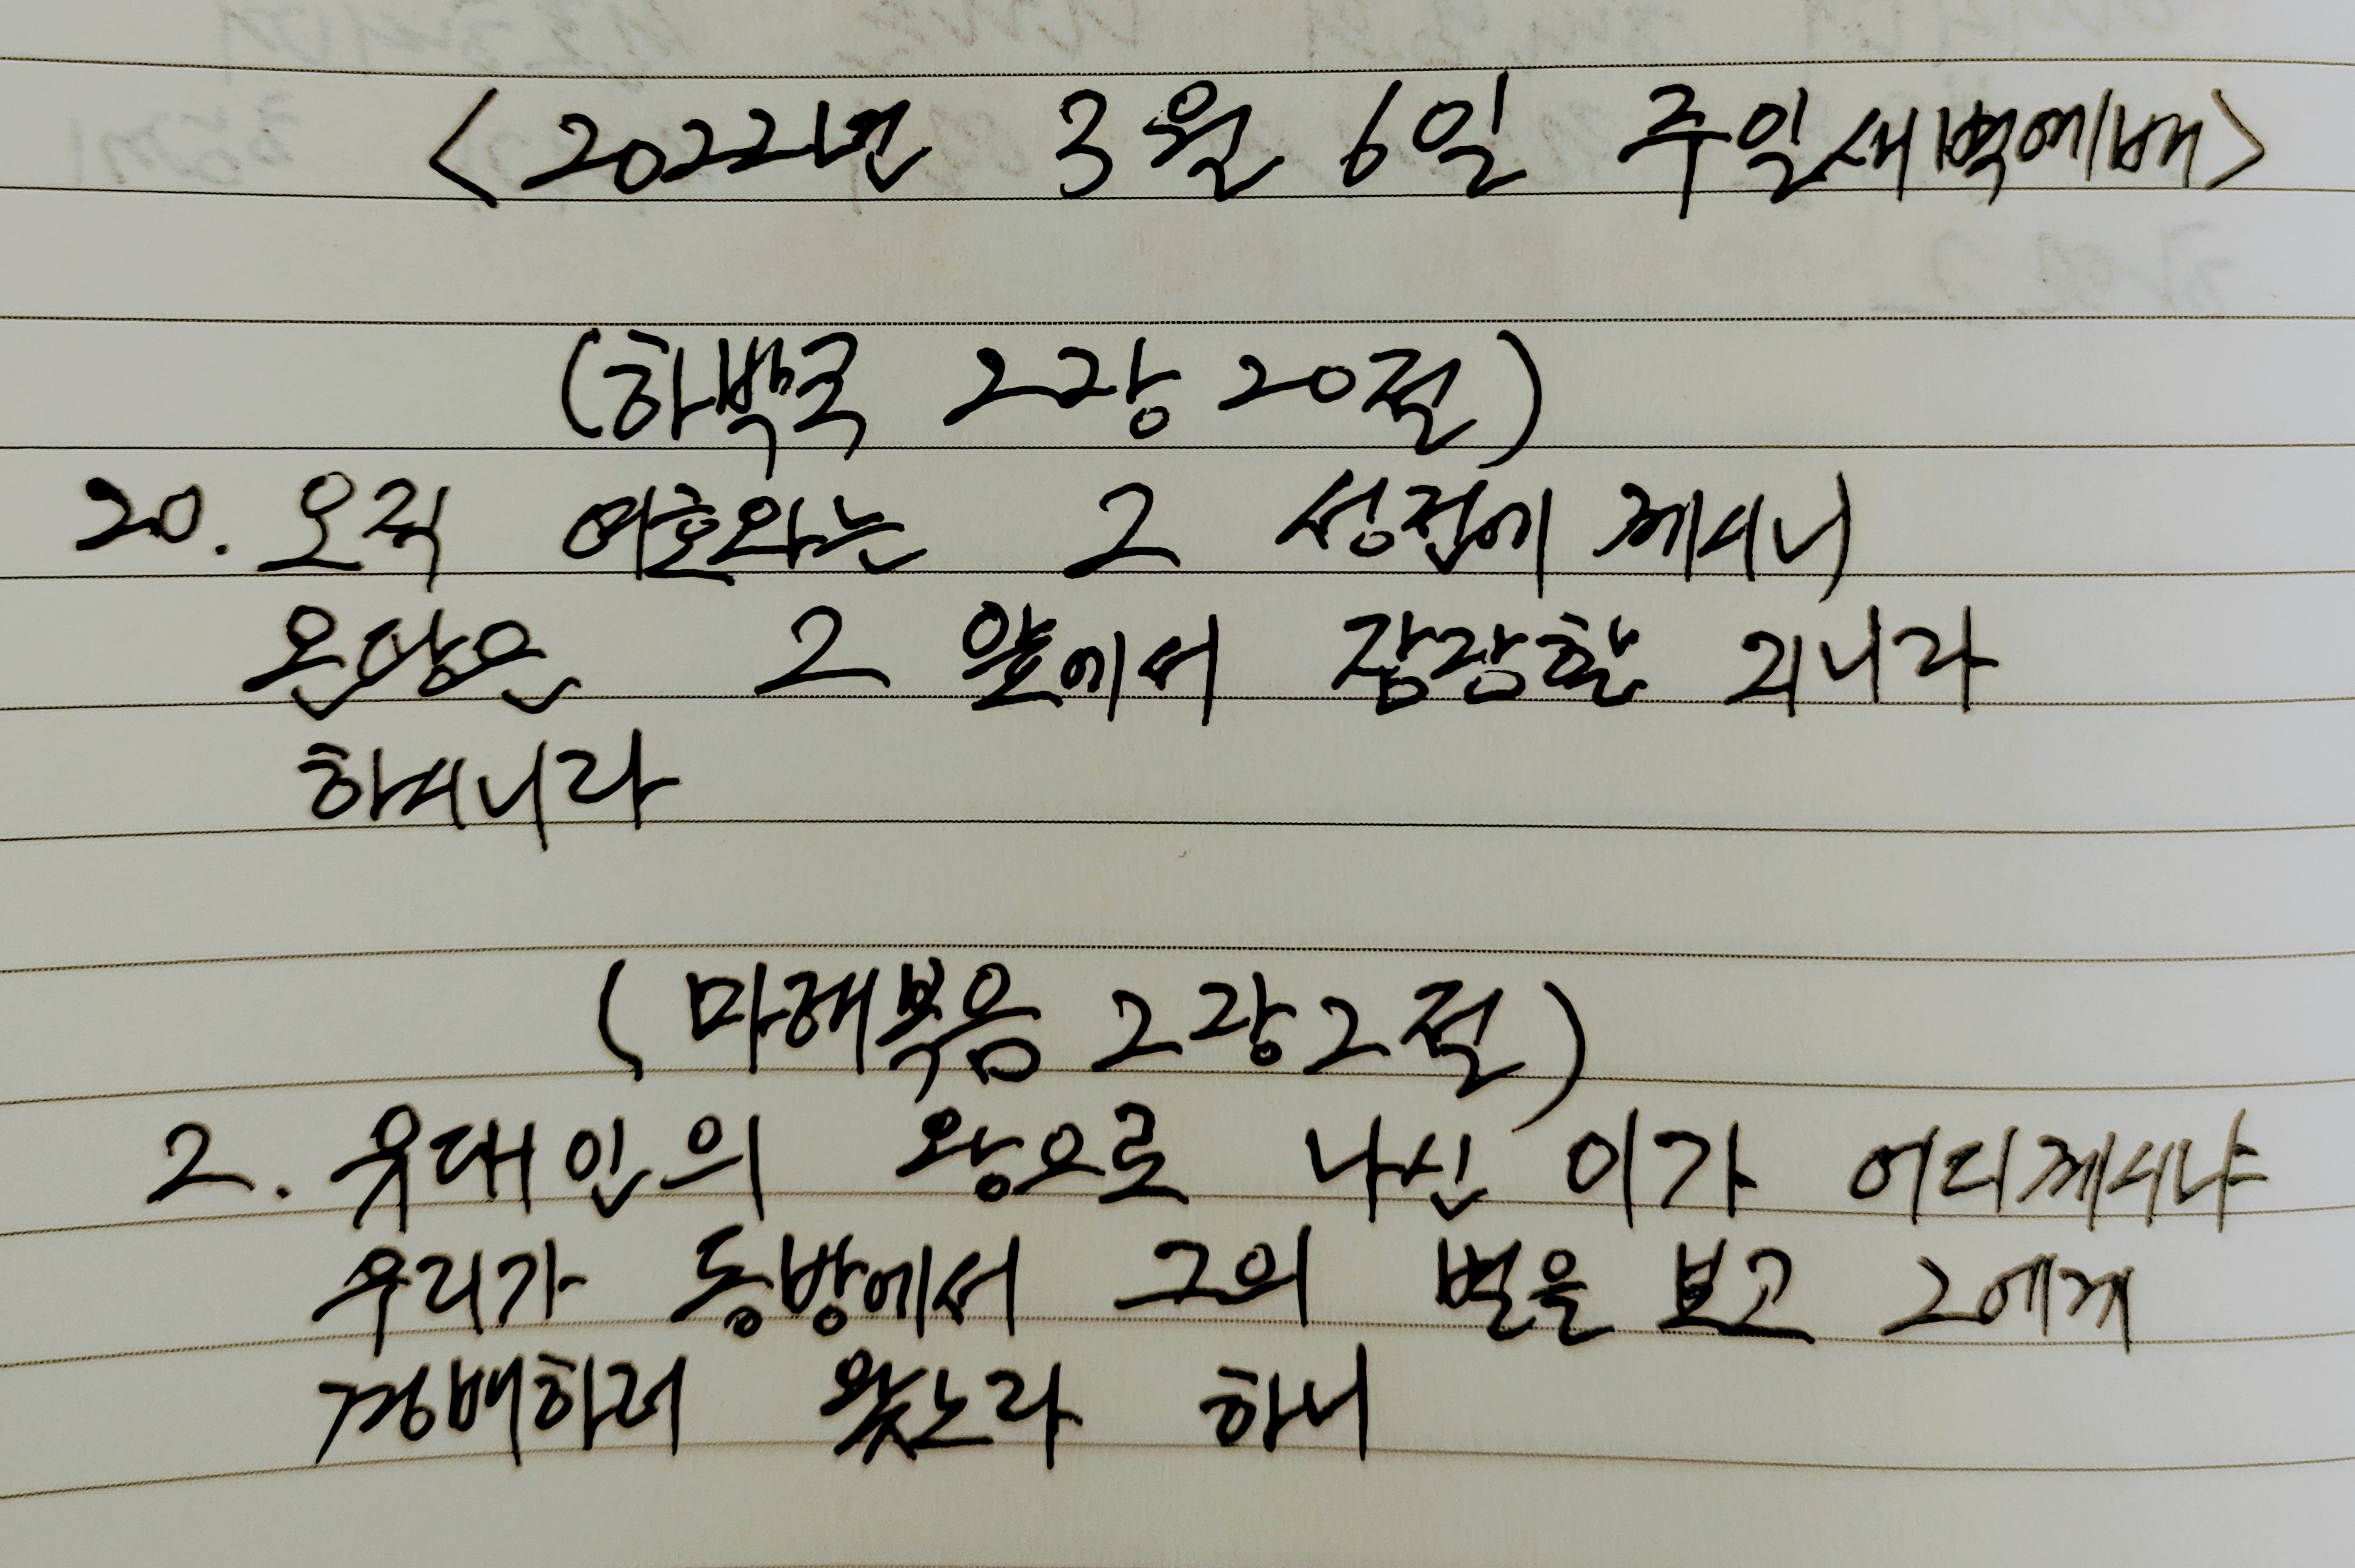 <2022년 3월 6일 주일새벽예배>
(하박국 2장 20절)
20. 오직 여호와는 그 성전에 계시니
온땅은 그 앞에서 잠잠할 지니라
하시니라
(마태복음 2장 2절)
2. 유대인의 왕으로 나신 이가 어디계시냐
우리가 동방에서 그의 별을 보고 그에게
경배하러 왔노라 하니